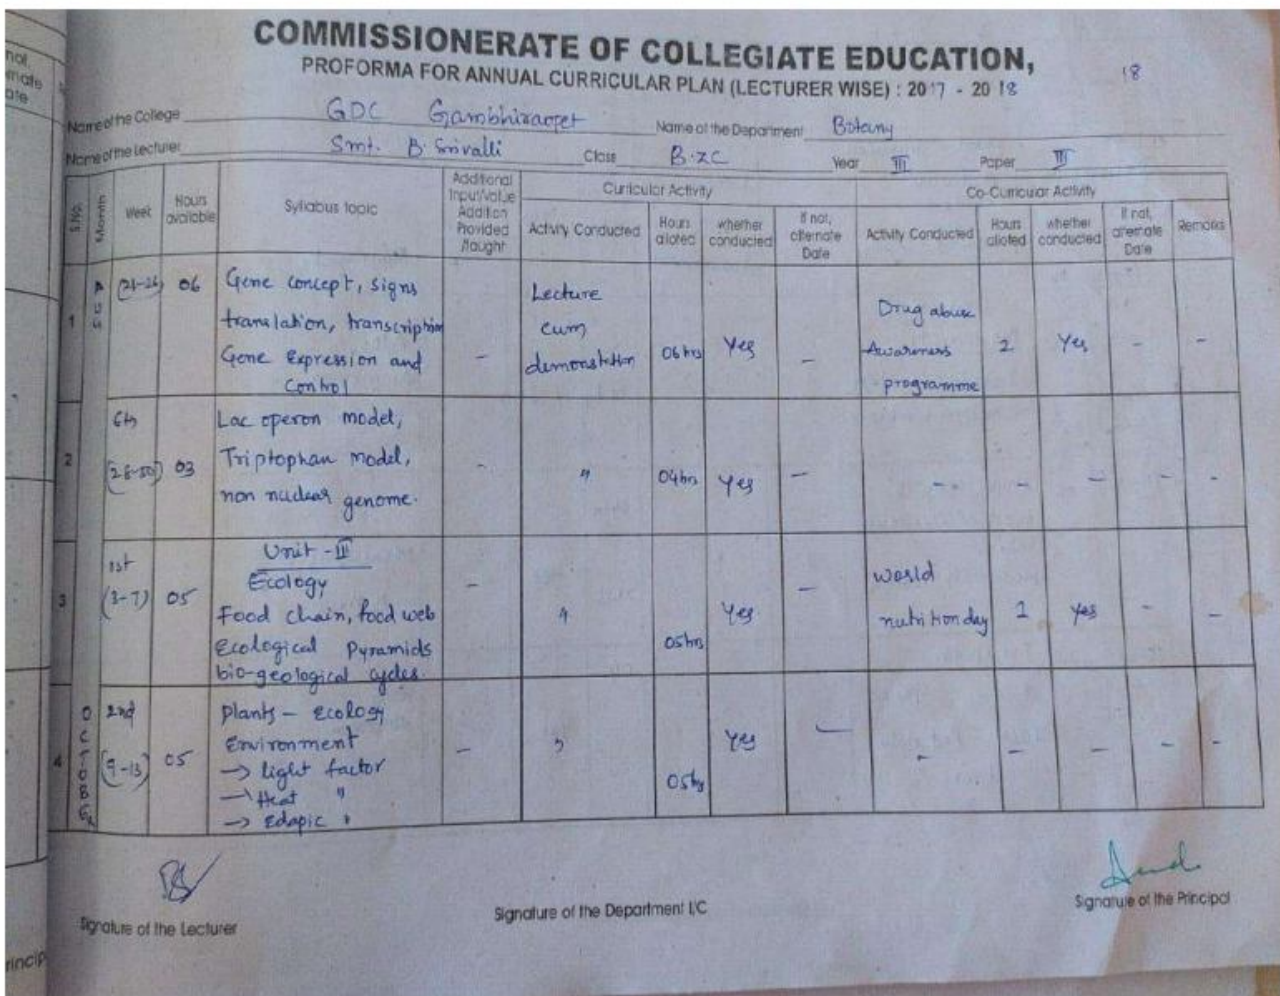 COMMISSIONERATE OF COLLEGIATE EDUCATION,
PROFORMA FOR ANNUAL CURRICULAR PLAN (LECTURER WISE) : 2017 - 2018
18
Name of the College GDC Gambhiraopet Name of the Department Botany
Name of the Lecturer Smt. B. Srivalli Class B.ZC Year III Paper III
S.No. Month Week Hours available Syllabus topic Additional Input/Value Addition Provided /Taught Curricular Activity Co-Curricular Activity
Activity Conducted Hours alloted whether conducted If not, alternate Date Activity Conducted Hours alloted whether conducted If not, alternate Date Remarks
1 AUG (21-26) 06 Gene concept, signs
translation, transcription
Gene Expression and
Control
- Lecture
cum
demonstration 06 hrs Yes -
Drug abuse
Awareness
programme 2 Yes - -
2 6th
(28-30) 03 Lac operon model,
Triptophan model,
non nuclear genome.
- " 04hrs Yes - - - - - -
3 1st
(3-7) 05 Unit - III
Ecology
Food chain, food web
Ecological Pyramids
bio-geological cycles.
- " 05hrs Yes -
world
nutrition day 1 Yes - -
4 OCTOBER 2nd
(9-13) 05 Plants - Ecology
Environment
→ light factor
→ Heat "
→ Edapic "
- " 05hrs Yes - - - - - -
Signature of the Lecturer
Signature of the Department I/C
Signature of the Principal